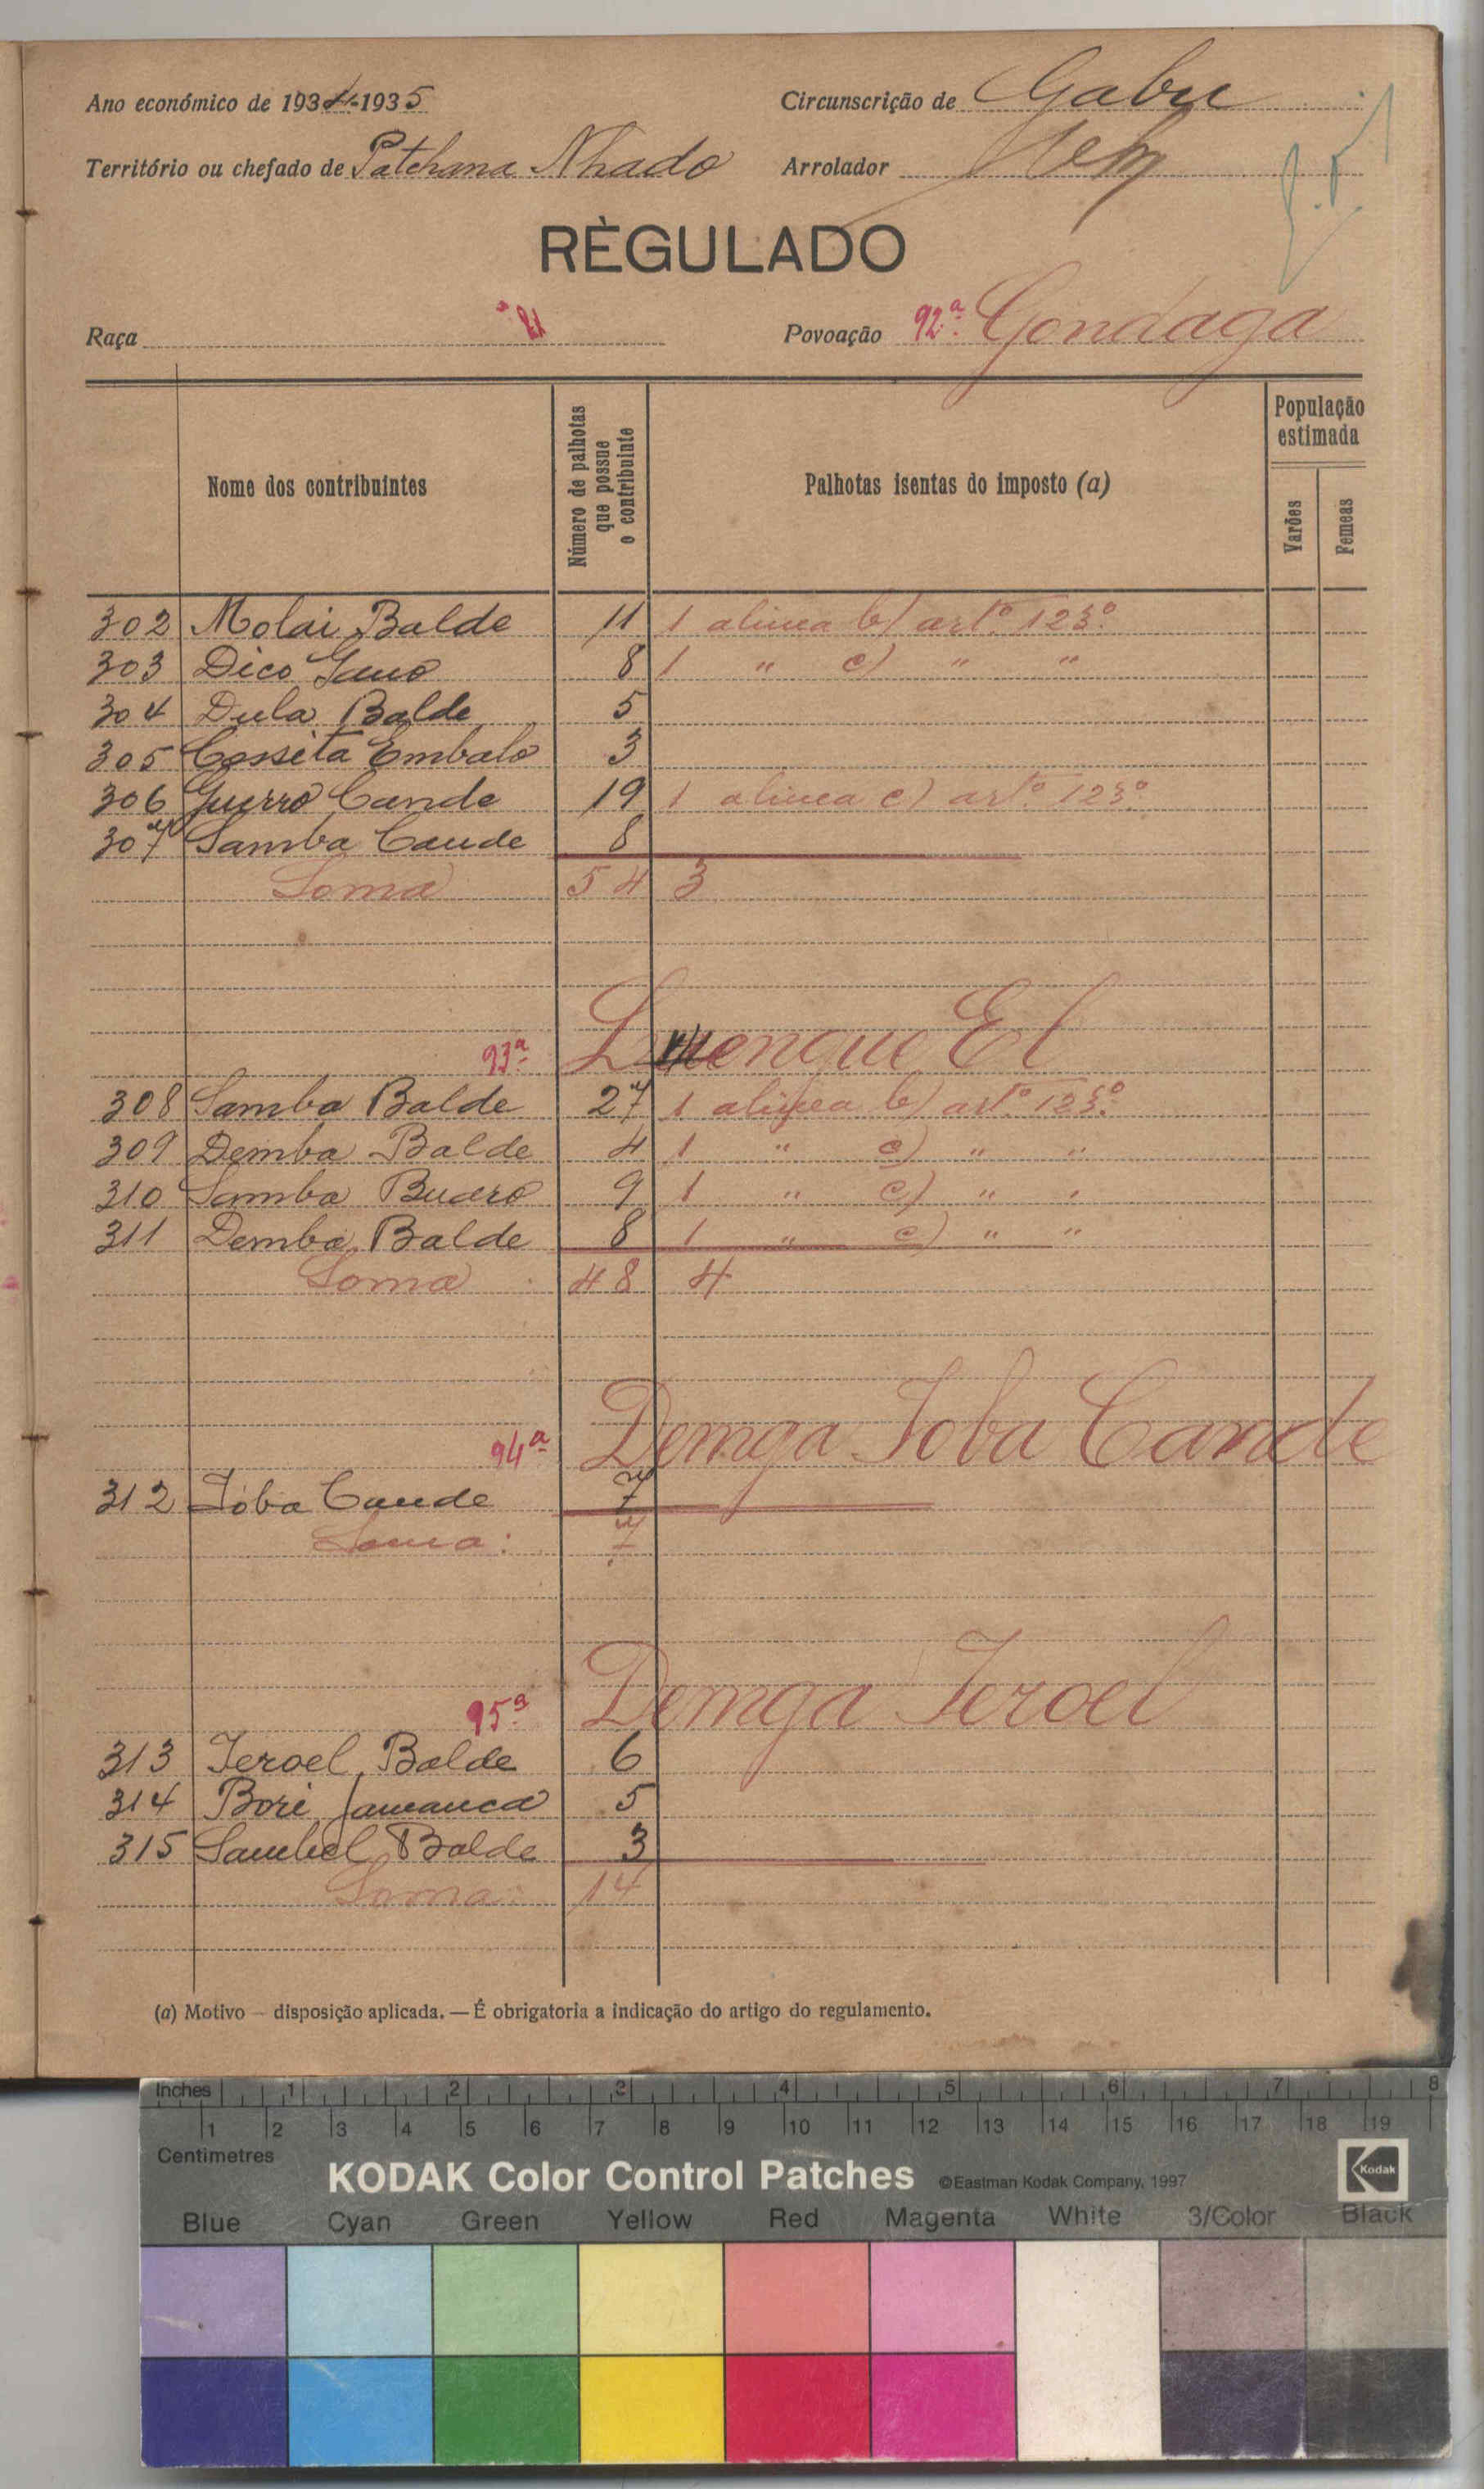 Ano económico de 1934-1935 Circunscrição de Gabu
Território ou chefado de Patchana Nhado Arrolador
RÈGULADO
Raça Povoação 92ª Gondaga
Nome dos contribuintes
Número de palhotas que possue o contribuinte
Palhotas isentas do imposto (a)
População estimada
Varões
Femeas
302 Molai Balde 11 1 alinea b) artº 123º
303 Dico Gano 8 1 " c) " "
304 Dula Balde 5
305 Cossita Embalo 3
306 Guerro Cande 19 1 alinea c) artº 123º
307 Samba Cande 8
Soma 54 3
93ª El
308 Samba Balde 27 1 alinea b) artº 123º
309 Demba Balde 4 1 " c) " "
310 Samba Buaro 9 1 " c) " "
311 Demba Balde 8 1 " c) " "
Soma 48 4
94ª Demga Ioba Cande
312 Ióba Cande 7
Soma: 7
95ª Demga Ieroel
313 Ieroel Balde 6
314 Bori Jamanca 5
315 Sambel Balde 3
Soma: 14
(a) Motivo — disposição aplicada. — É obrigatoria a indicação do artigo do regulamento.
Inches 1 2 3 4 5 6 7 8
1 2 3 4 5 6 7 8 9 10 11 12 13 14 15 16 17 18 19
Centimetres
KODAK Color Control Patches ©Eastman Kodak Company, 1997 Kodak
Blue Cyan Green Yellow Red Magenta White 3/Color Black